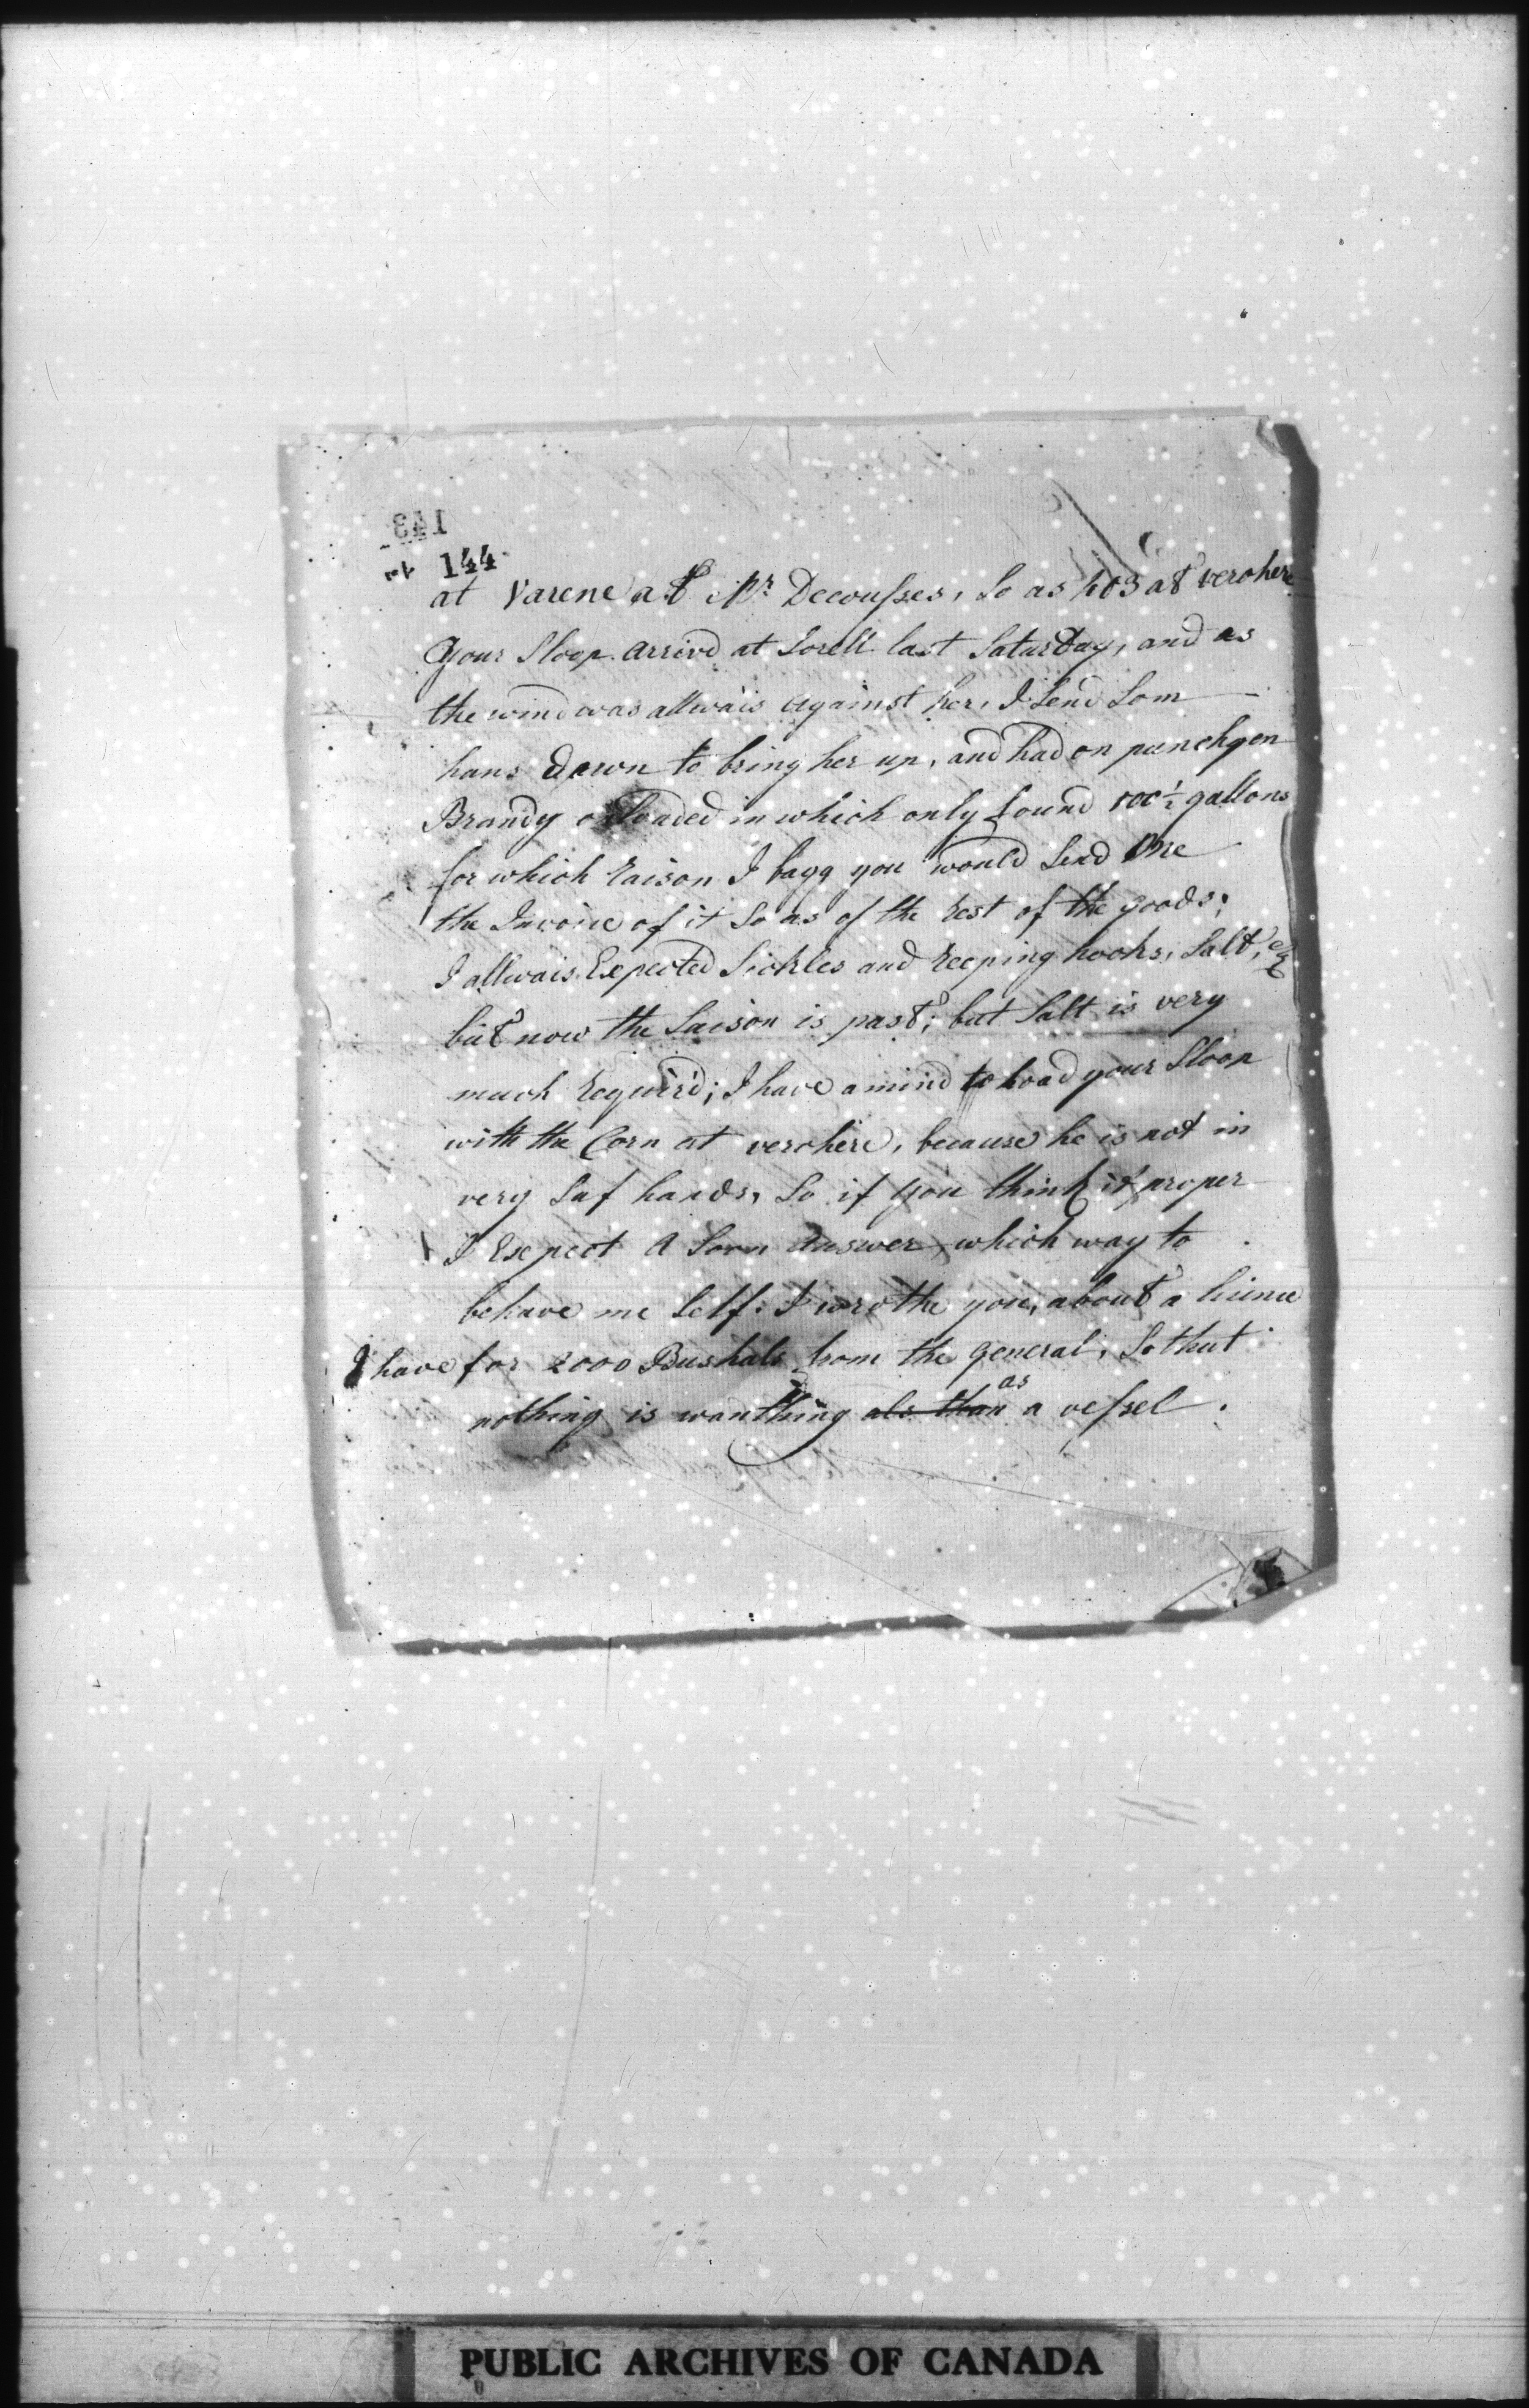 143
144
at Varene at Mr Decousses, so as 403 at verchere
your Sloop arrivd at Sorell last Saturday, and as
the wind was allwais against her, I send som
hans down to bring her up, and had on punchgon
Brandy loaded in which only found 100½ gallons
for which raison I bagg you would send me
the Invoice of it so as of the rest of the goods;
I allwais Expected Sickles and reeping hooks, Salt, &c
but now the saison is past; but Salt is very
much requir'd; I have a mind to load your Sloop
with the Corn at verchere, because he is not in
very saf hands, so if you think it proper
I Expect a soon answer which way to
behave me self: I wrothe you, about a licence
I have for 2000 Bushals from the general, so that
nothing is wanthing als than as a vessel.
PUBLIC ARCHIVES OF CANADA